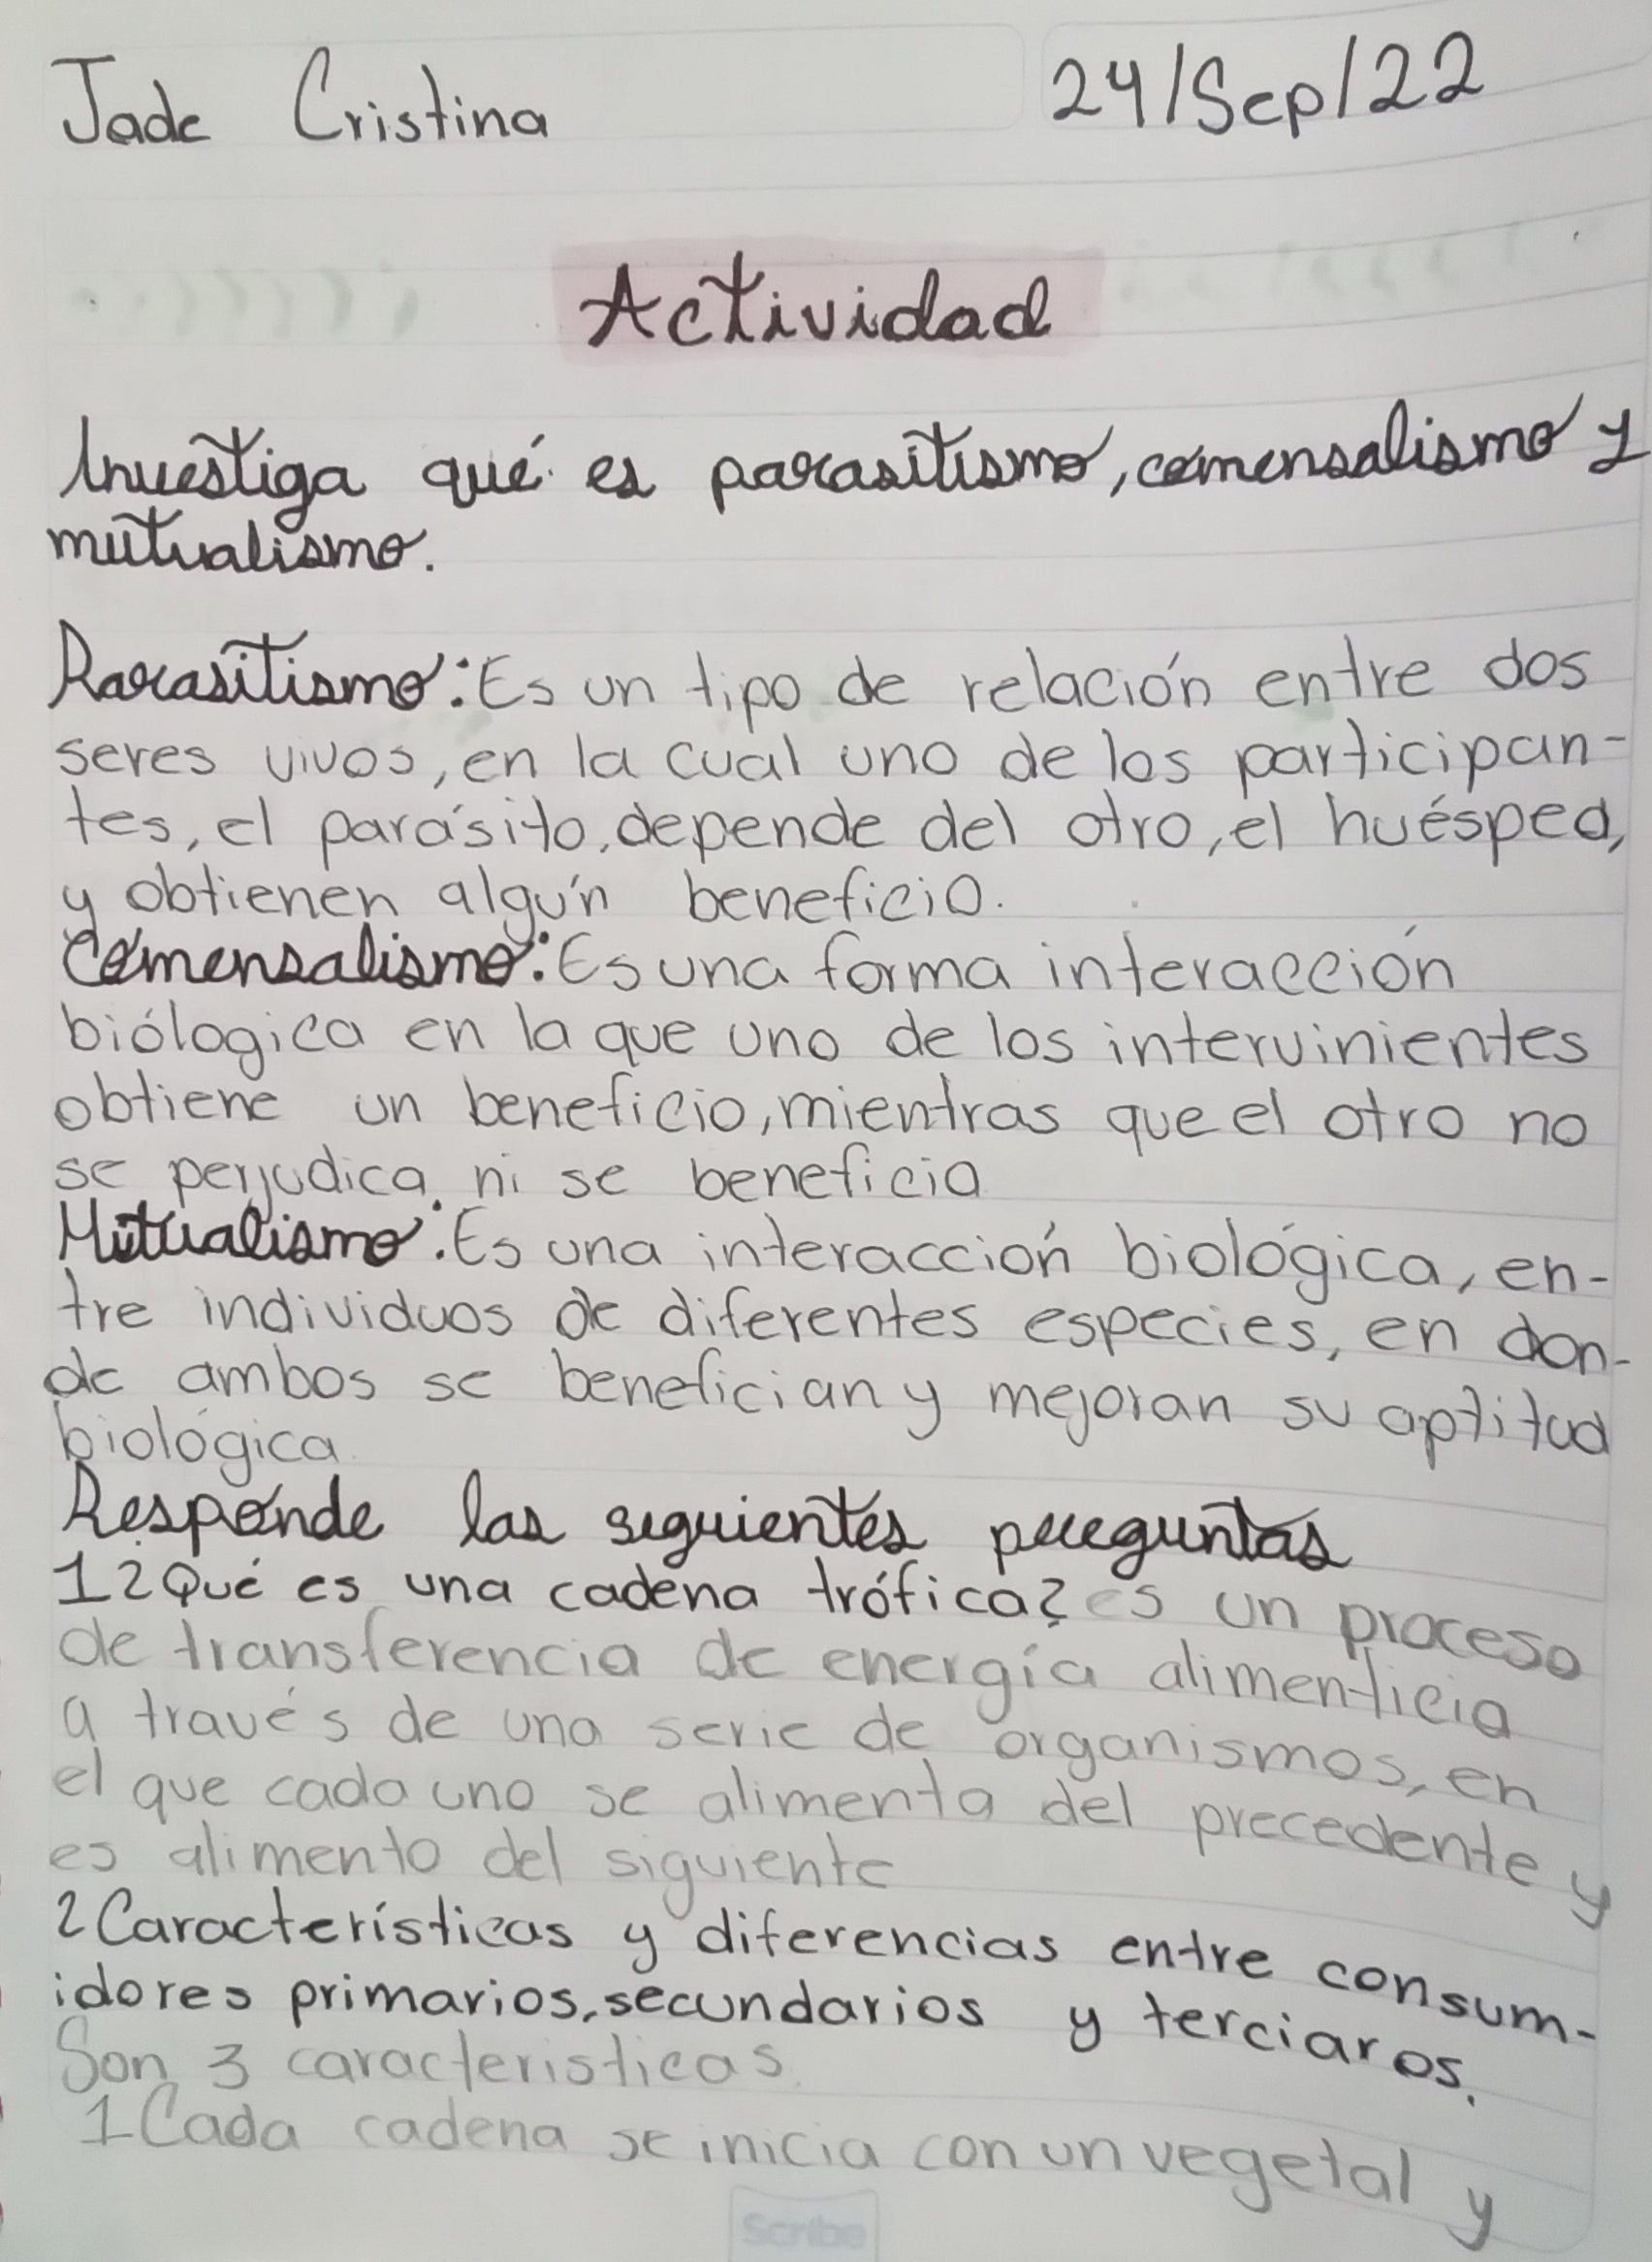 Jade Cristina 24/Sep/22
Actividad
Investiga qué es parasitismo, comensalismo y
mutualismo.
Parasitismo: Es un tipo de relación entre dos
seres vivos, en la cual uno de los participan-
tes, el parásito, depende del otro, el huésped,
y obtienen algún beneficio.
Comensalismo: Es una forma interacción
biólogica en la que uno de los intervinientes
obtiene un beneficio, mientras que el otro no
se perjudica ni se beneficia
Mutualismo: Es una interacción biológica, en-
tre individuos de diferentes especies, en don-
de ambos se benefician y mejoran su aptitud
biológica.
Responde las siguientes preguntas
1 ¿Qué es una cadena trófica? es un proceso
de transferencia de energía alimenticia
a través de una serie de organismos, en
el que cada uno se alimenta del precedente y
es alimento del siguiente
2 Características y diferencias entre consum-
idores primarios, secundarios y terciaros.
Son 3 caracteristicas.
1 Cada cadena se inicia con un vegetal y
Scribe